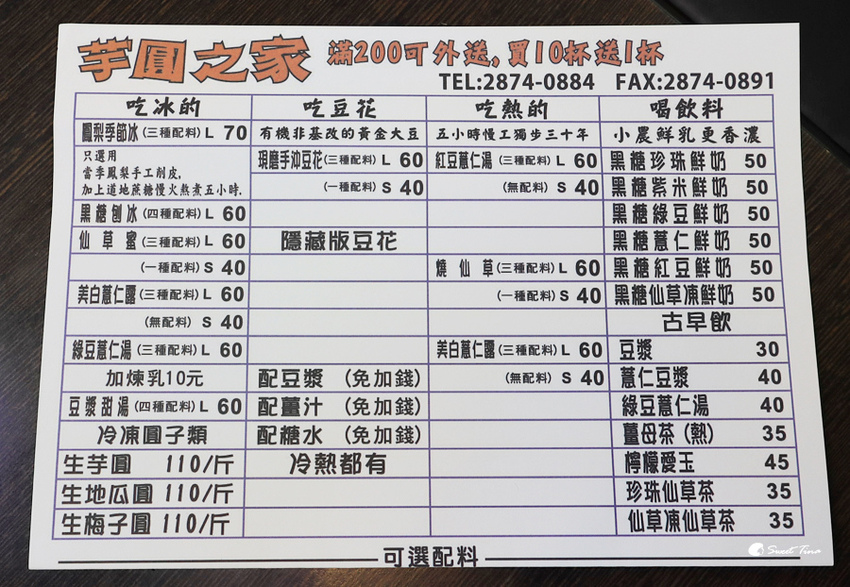 芋圓之家 滿200可外送,買10杯送1杯
TEL:2874-0884 FAX:2874-0891
吃冰的 吃豆花 吃熱的 喝飲料
鳳梨季節冰(三種配料)L 70 有機非基改的黃金大豆 五小時慢工獨步三十年 小農鮮乳更香濃
只選用
當季鳳梨手工削皮,
加上道地蔗糖慢火熬煮五小時.
現磨手沖豆花(三種配料)L 60 紅豆薏仁湯(三種配料)L 60 黑糖珍珠鮮奶 50
(一種配料)S 40 (無配料)S 40 黑糖紫米鮮奶 50
黑糖刨冰(四種配料)L 60 黑糖綠豆鮮奶 50
仙草蜜(三種配料)L 60 隱藏版豆花 黑糖薏仁鮮奶 50
(一種配料)S 40 燒仙草(三種配料)L 60 黑糖紅豆鮮奶 50
美白薏仁露(三種配料)L 60 (一種配料)S 40 黑糖仙草凍鮮奶 50
(無配料) S 40 古早飲
綠豆薏仁湯(三種配料)L 60 美白薏仁露(三種配料)L 60 豆漿 30
加煉乳10元 配豆漿 (免加錢) (無配料)S 40 薏仁豆漿 40
豆漿甜湯(四種配料)L 60 配薑汁 (免加錢) 綠豆薏仁湯 40
冷凍圓子類 配糖水 (免加錢) 薑母茶(熱) 35
生芋圓 110/斤 冷熱都有 檸檬愛玉 45
生地瓜圓 110/斤 珍珠仙草茶 35
生梅子圓 110/斤 仙草凍仙草茶 35
可選配料
Sweet Tina